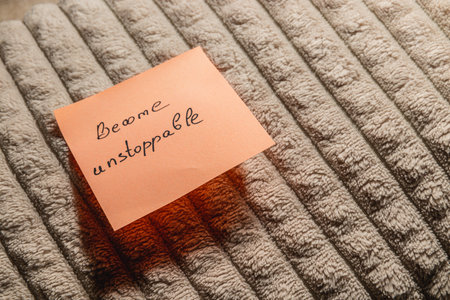 Become
unstoppable